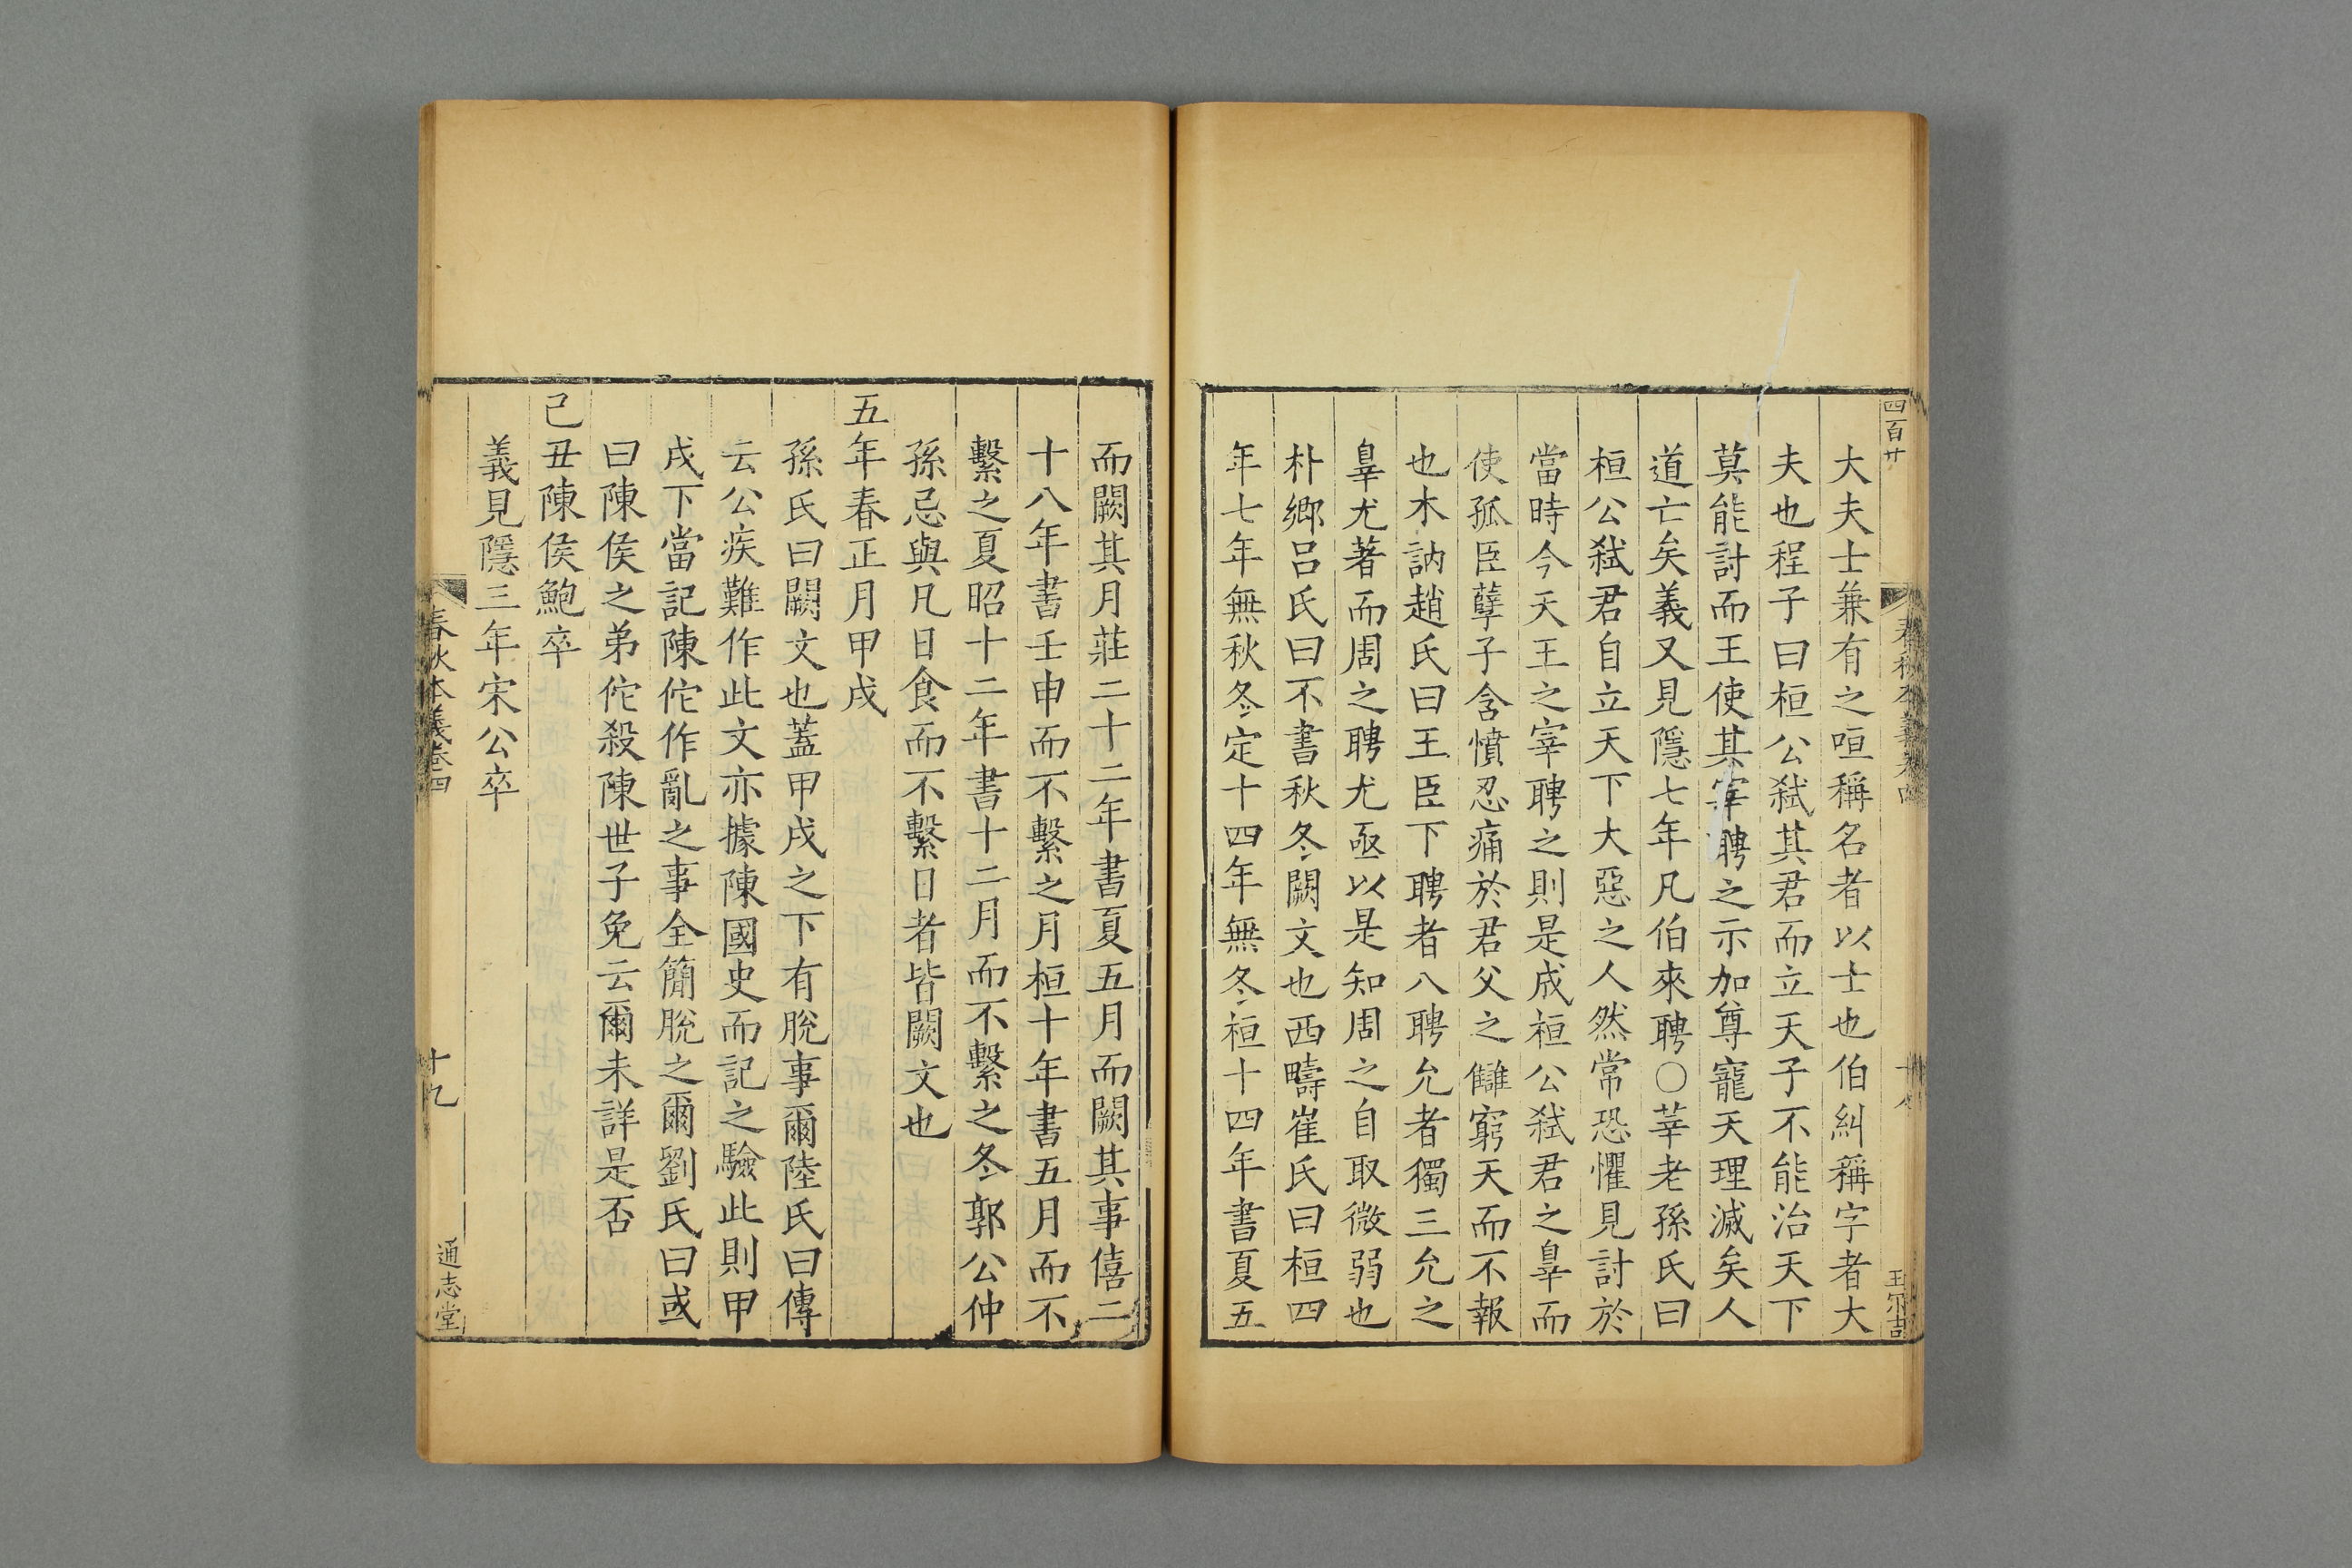 四百廿
春秋本義卷四
十八
大夫士兼有之咺稱名者以士也伯糾稱字者大
夫也程子曰桓公弑其君而立天子不能治天下
莫能討而王使其宰聘之示加尊寵天理滅矣人
道亡矣義又見隱七年凡伯來聘○莘老孫氏曰
桓公弑君自立天下大惡之人然常恐懼見討於
當時今天王之宰聘之則是成桓公弑君之辠而
使孤臣孽子含憤忍痛於君父之讎窮天而不報
也木訥趙氏曰王臣下聘者八聘允者獨三允之
辠尤著而周之聘尤亟以是知周之自取微弱也
朴鄉呂氏曰不書秋冬闕文也西疇崔氏曰桓四
年七年無秋冬定十四年無冬桓十四年書夏五
而闕其月莊二十二年書夏五月而闕其事僖二
十八年書壬申而不繫之月桓十年書五月而不
繫之夏昭十二年書十二月而不繫之冬郭公仲
孫忌與凡日食而不繫日者皆闕文也
五年春正月甲戌
孫氏曰闕文也蓋甲戌之下有脫事爾陸氏曰傳
云公疾難作此文亦據陳國史而記之驗此則甲
戌下當記陳佗作亂之事全簡脫之爾劉氏曰或
曰陳侯之弟佗殺陳世子免云爾未詳是否
己丑陳侯鮑卒
義見隱三年宋公卒
春秋本義卷四
十九
通志堂